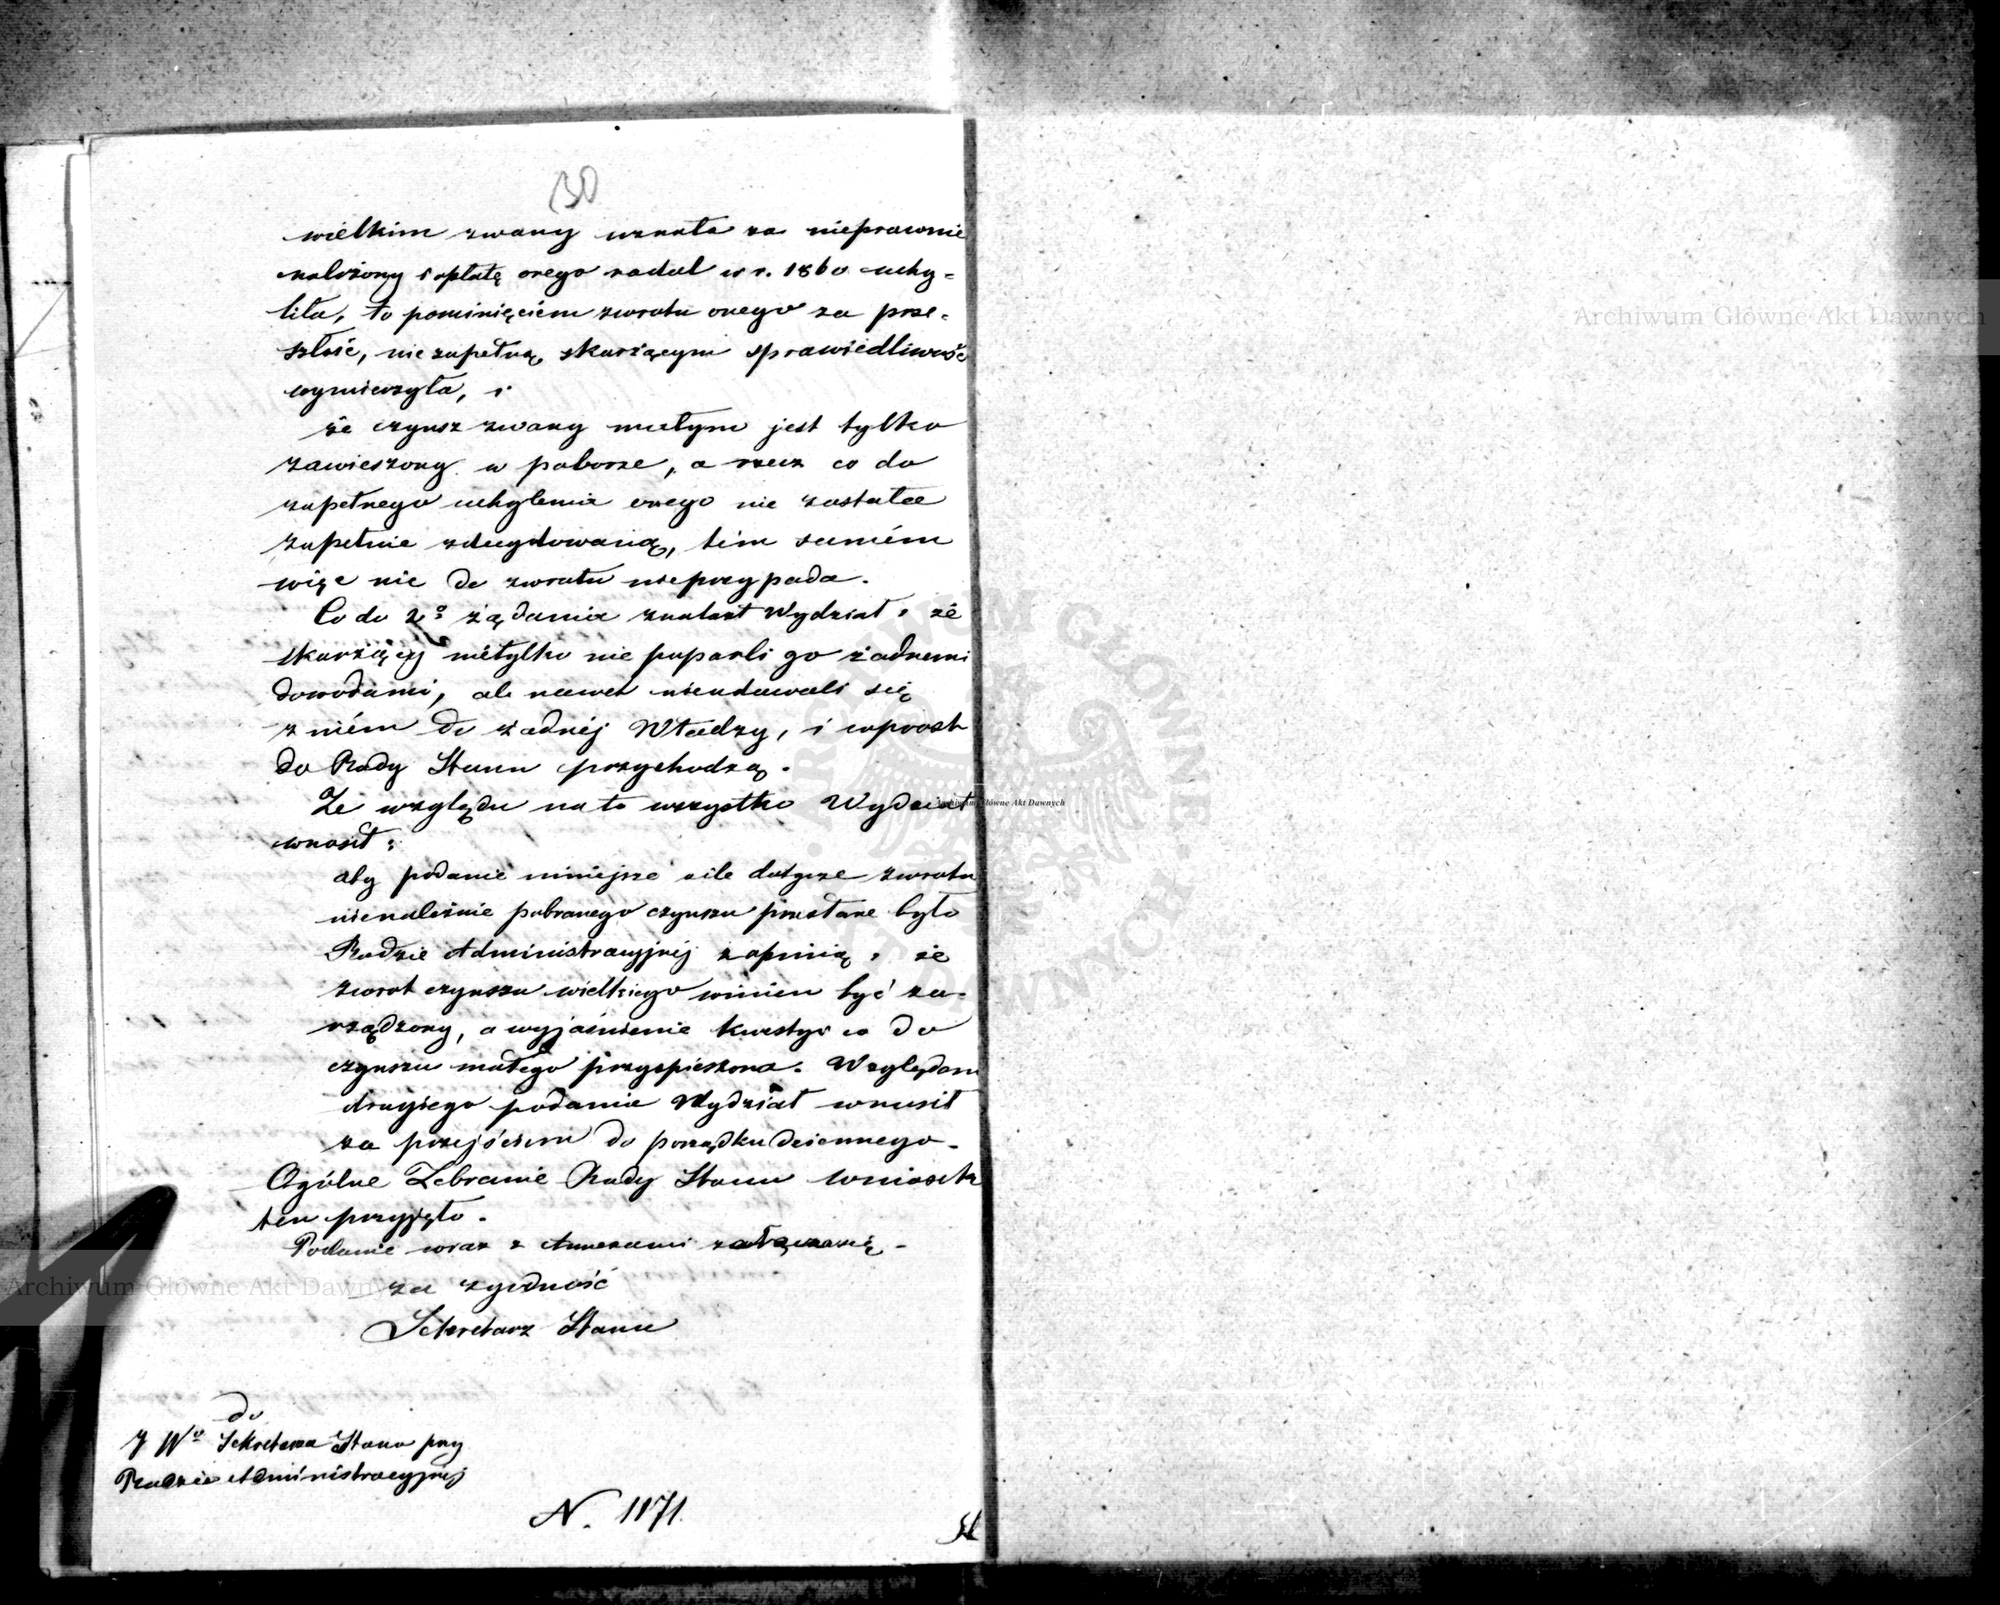 130
wielkim zwany uznała za nieprawnie
nałożony i opłatę onego nadal w r. 1860 uchy-
liła, to pominięciem zwrotu onego za prze-
szłość, nie zupełną skarżącym sprawiedliwość
wymierzyła, i
że czynsz zwany małym jest tylko
zawieszony w poborze, a rzecz co do
zupełnego uchylenia onego nie została
zupełnie zdecydowaną, tém samém
więc nic do zwrotu nieprzypada.
Co do 2º żądania znalazł Wydział: że
skarżący nietylko nie poparli go żadnemi
dowodami, ale nawet nieudawali się
z niém do żadnéj Władzy, i wprost
do Rady Stanu przychodzą.
Ze względu na to wszystko Wydział
wnosił:
aby podanie niniejsze o ile dotycze zwrotu
nienależnie pobranego czynszu przesłane było
Radzie Administracyjnéj z opinią: że
zwrot czynszu wielkiego winien być za-
rządzony, a wyjaśnienie kwestyi co do
czynszu małego przyspieszone. Względem
drugiego podania Wydział wnosił
za przejściem do porządku dziennego.
Ogólne Zebranie Rady Stanu wniosek
ten przyjęło.
Podanie wraz z Annexami załącza się.
za zgodność
Sekretarz Stanu
do
J Wº Sekretarza Stanu przy
Radzie Administracyjnéj
N. 1171.
Archiwum Główne Akt Dawnych
Archiwum Główne Akt Dawnych
Archiwum Główne Akt Dawnych
ARCHIWUM GŁÓWNE AKT DAWNYCH